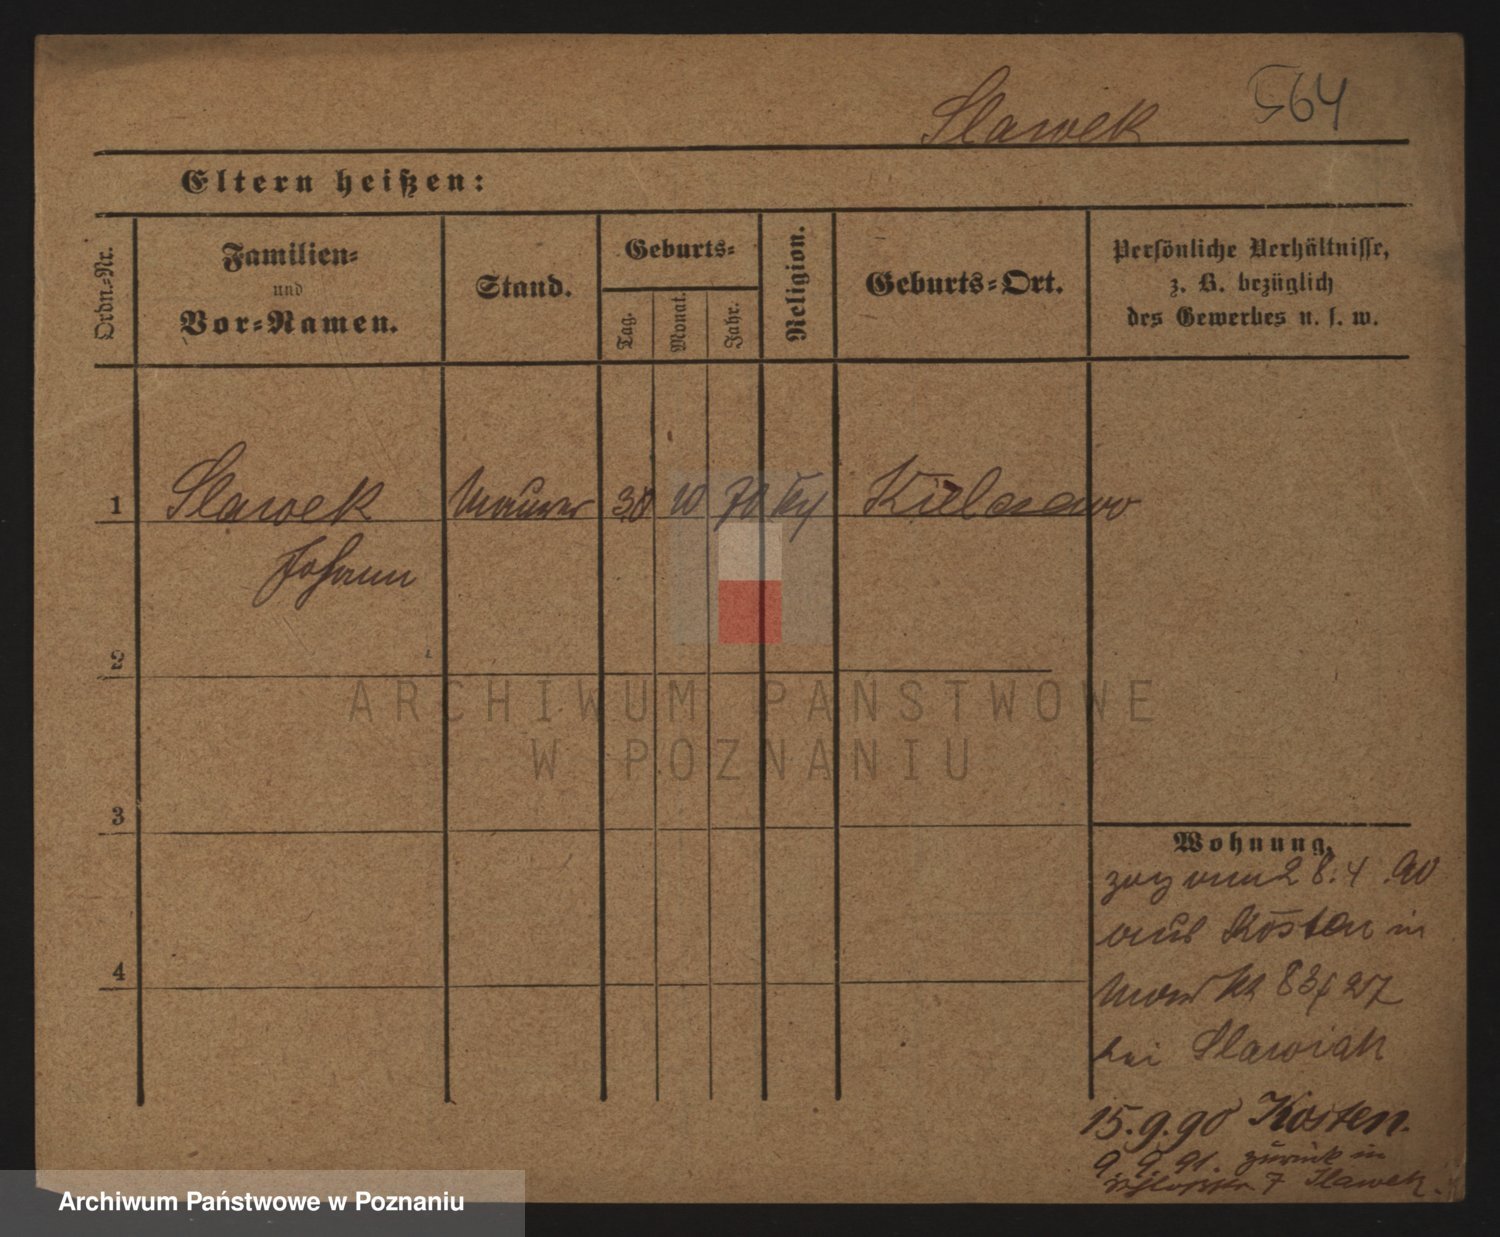 Slawek 564
Eltern heißen:
Ordn.-Nr.
Familien-
und
Vor-Namen.
Stand.
Geburts-
Tag.
Monat.
Jahr.
Religion.
Geburts-Ort.
Persönliche Verhältnisse,
z. B. bezüglich
des Gewerbes u. s. w.
1 Slawek Maurer 30 10 70
Johann
2
ARCHIWUM PAŃSTWOWE
W POZNANIU
3
Wohnung.
zog am 28.4.90
aus Kosten in
Markt 83/ 27
bei Slawiak
4
15.9.90 Kosten.
9. 9. 91. zurück in
7 Slawek.
Archiwum Państwowe w Poznaniu